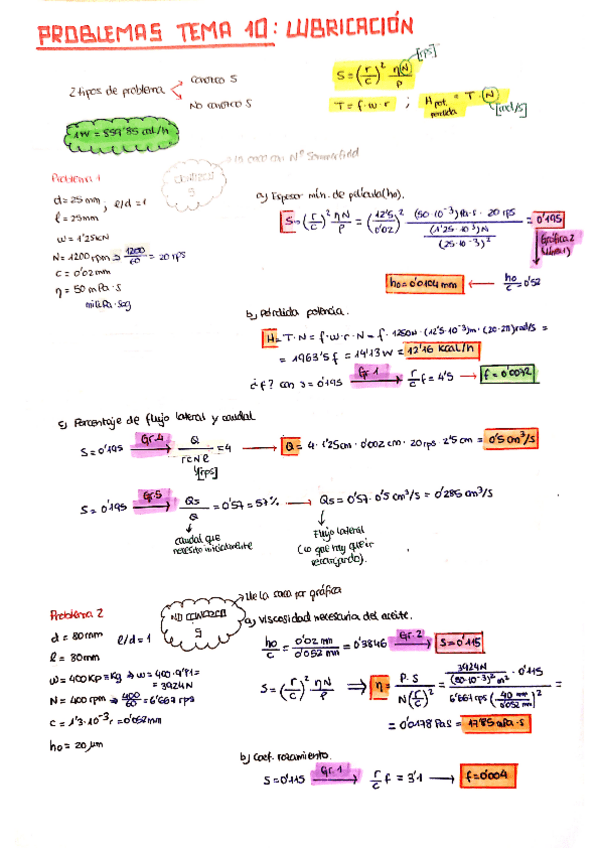 PROBLEMAS TEMA 10: LUBRICACIÓN
2 tipos de problema
CONOZCO S
NO CONOZCO S
S = (r/c)² ηN/P [rps]
T = f·w·r ; H pot. perdida = T·N [rad/s]
1W = 859'85 cal/h
Problema 1
CONOZCO S
d = 25 mm, l/d = 1
l = 25mm
w = 1'25KN
N = 1200 rpm ⇒ 1200/60 = 20 rps
c = 0'02 mm
η = 50 mPa·s
mili Pa·seg
a) Espesor mín. de película (ho).
S = (r/c)² ηN/P = (12'5/0'02)² · (50·10⁻³)Pa·s · 20 rps / ((1'25·10³)N / (25·10⁻³)²) = 0'195
Gráfica 2
ho/c = 0'52
ho = 0'0104 mm
b) Pérdida potencia.
H = T·N = f·w·r·N = f·1250N·(12'5·10⁻³)m·(20·2π)rad/s =
= 1963'5 f = 14'13 W = 12'16 Kcal/h
¿f? con S = 0'195 Gr.1 r/c f = 4'5 → f = 0'0072
c) Porcentaje de flujo lateral y caudal
S = 0'195 Gr.4 Q/rcNl = 4 → Q = 4·1'25cm·0'002cm·20 rps·2'5cm = 0'5 cm³/s
[rps]
S = 0'195 Gr.5 Qs/Q = 0'57 = 57% → Qs = 0'57·0'5 cm³/s = 0'285 cm³/s
caudal que necesito inicialmente
Flujo lateral (lo que hay que ir recargando).
Problema 2
NO CONOZCO S
Me la saco por gráfica
d = 80mm l/d = 1
l = 80mm
w = 400Kp=Kg → w = 400·9'81 = 3924N
N = 400 rpm → 400/60 = 6'667 rps
c = 1'3·10⁻³ r = 0'052mm
ho = 20 μm
a) Viscosidad necesaria del aceite.
ho/c = 0'02 mm/0'052 mm = 0'3846 Gr.2 S = 0'115
S = (r/c)² ηN/P ⇒ η = P·S/N(r/c)² = (3924N/(80·10⁻³)²m² · 0'115) / (6'667 rps (40 mm/0'052 mm)²) =
= 0'0178 Pa·s = 17'85 mPa·s
b) Coef. rozamiento.
S = 0'115 Gr.1 r/c f = 3'1 → f = 0'004